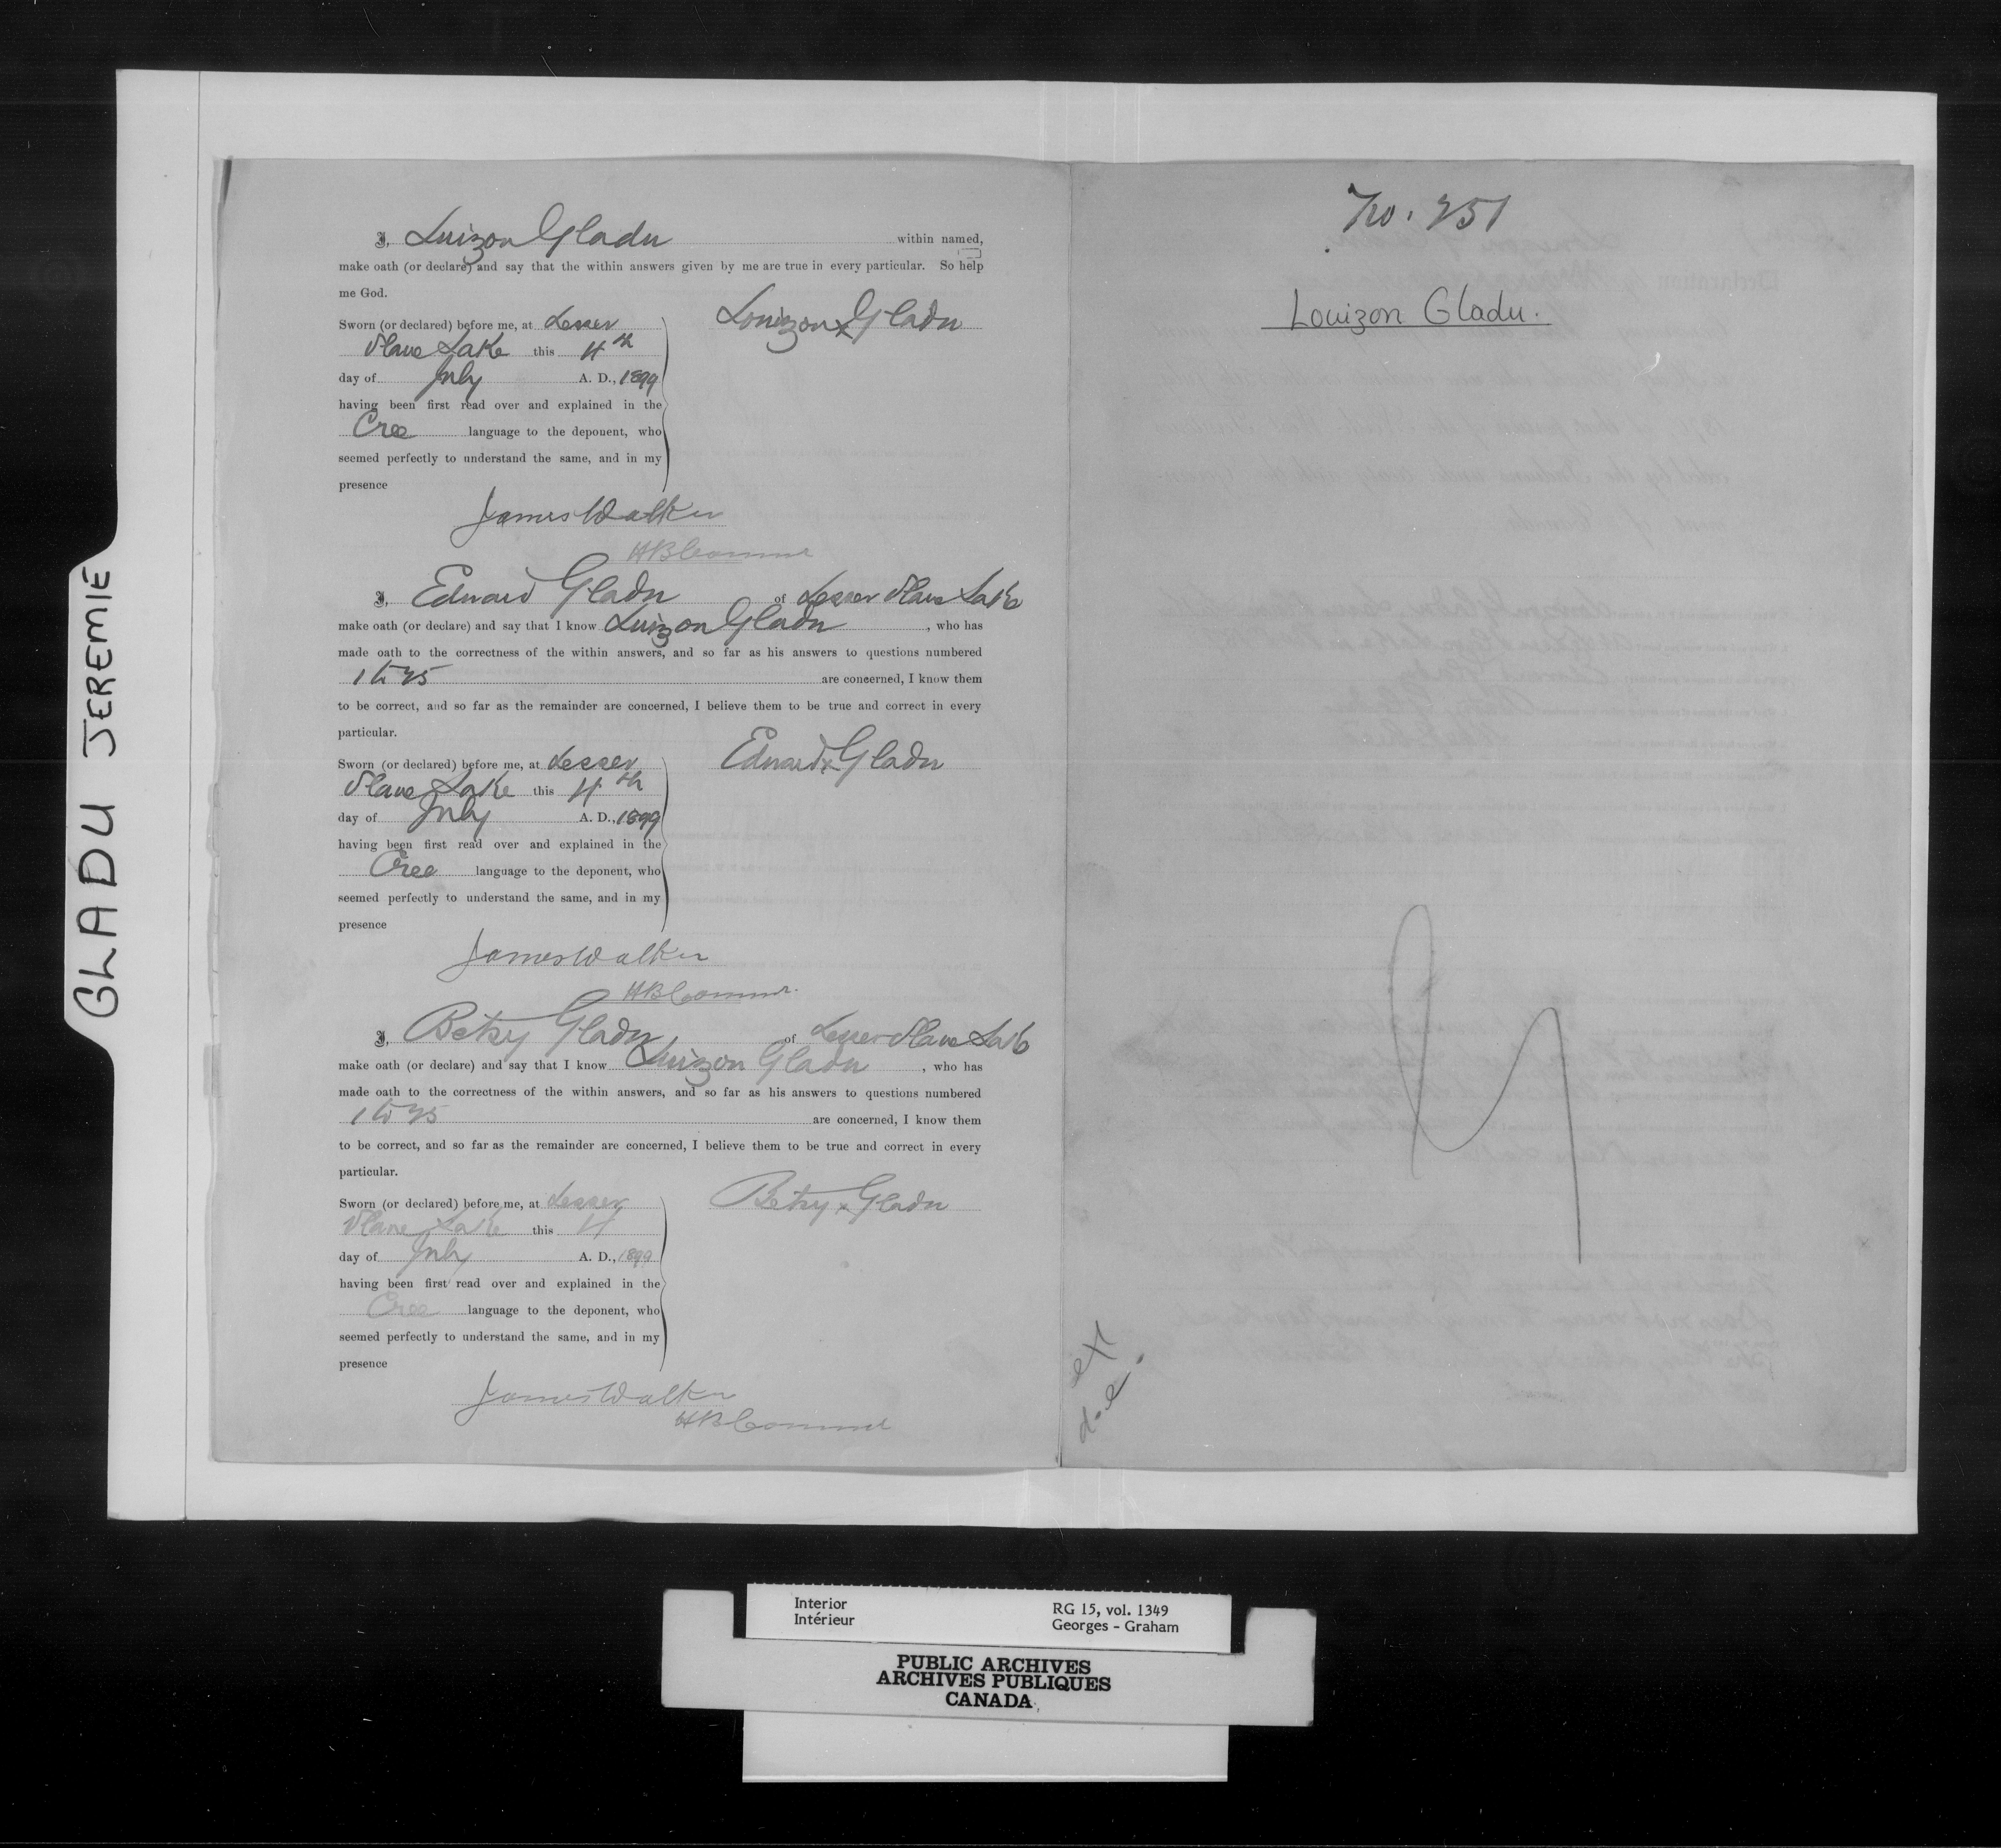 GLADU JEREMIE
I, Luizon Gladu within named,
make oath (or declare) and say that the within answers given by me are true in every particular. So help
me God.
Sworn (or declared) before me, at Lesser
Slave Lake this 4th
day of July A. D., 1899
having been first read over and explained in the
Cree language to the deponent, who
seemed perfectly to understand the same, and in my
presence
Louizon x Gladu
James Walker
HB Commr
I, Edward Gladu of Lesser Slave Lake
make oath (or declare) and say that I know Luizon Gladu, who has
made oath to the correctness of the within answers, and so far as his answers to questions numbered
1 to 25 are concerned, I know them
to be correct, and so far as the remainder are concerned, I believe them to be true and correct in every
particular.
Sworn (or declared) before me, at Lesser
Slave Lake this 4th
day of July A. D., 1899
having been first read over and explained in the
Cree language to the deponent, who
seemed perfectly to understand the same, and in my
presence
Edward x Gladu
James Walker
HB Commr.
I, Betsy Gladu of Lesser Slave Lake
make oath (or declare) and say that I know Luizon Gladu, who has
made oath to the correctness of the within answers, and so far as his answers to questions numbered
1 to 25 are concerned, I know them
to be correct, and so far as the remainder are concerned, I believe them to be true and correct in every
particular.
Sworn (or declared) before me, at Lesser
Slave Lake this 4
day of July A. D., 1899
having been first read over and explained in the
Cree language to the deponent, who
seemed perfectly to understand the same, and in my
presence
Betsy x Gladu
James Walker
HB Commr
No. 251
Louizon Gladu.
ext
Interior
Intérieur
RG 15, vol. 1349
Georges - Graham
PUBLIC ARCHIVES
ARCHIVES PUBLIQUES
CANADA